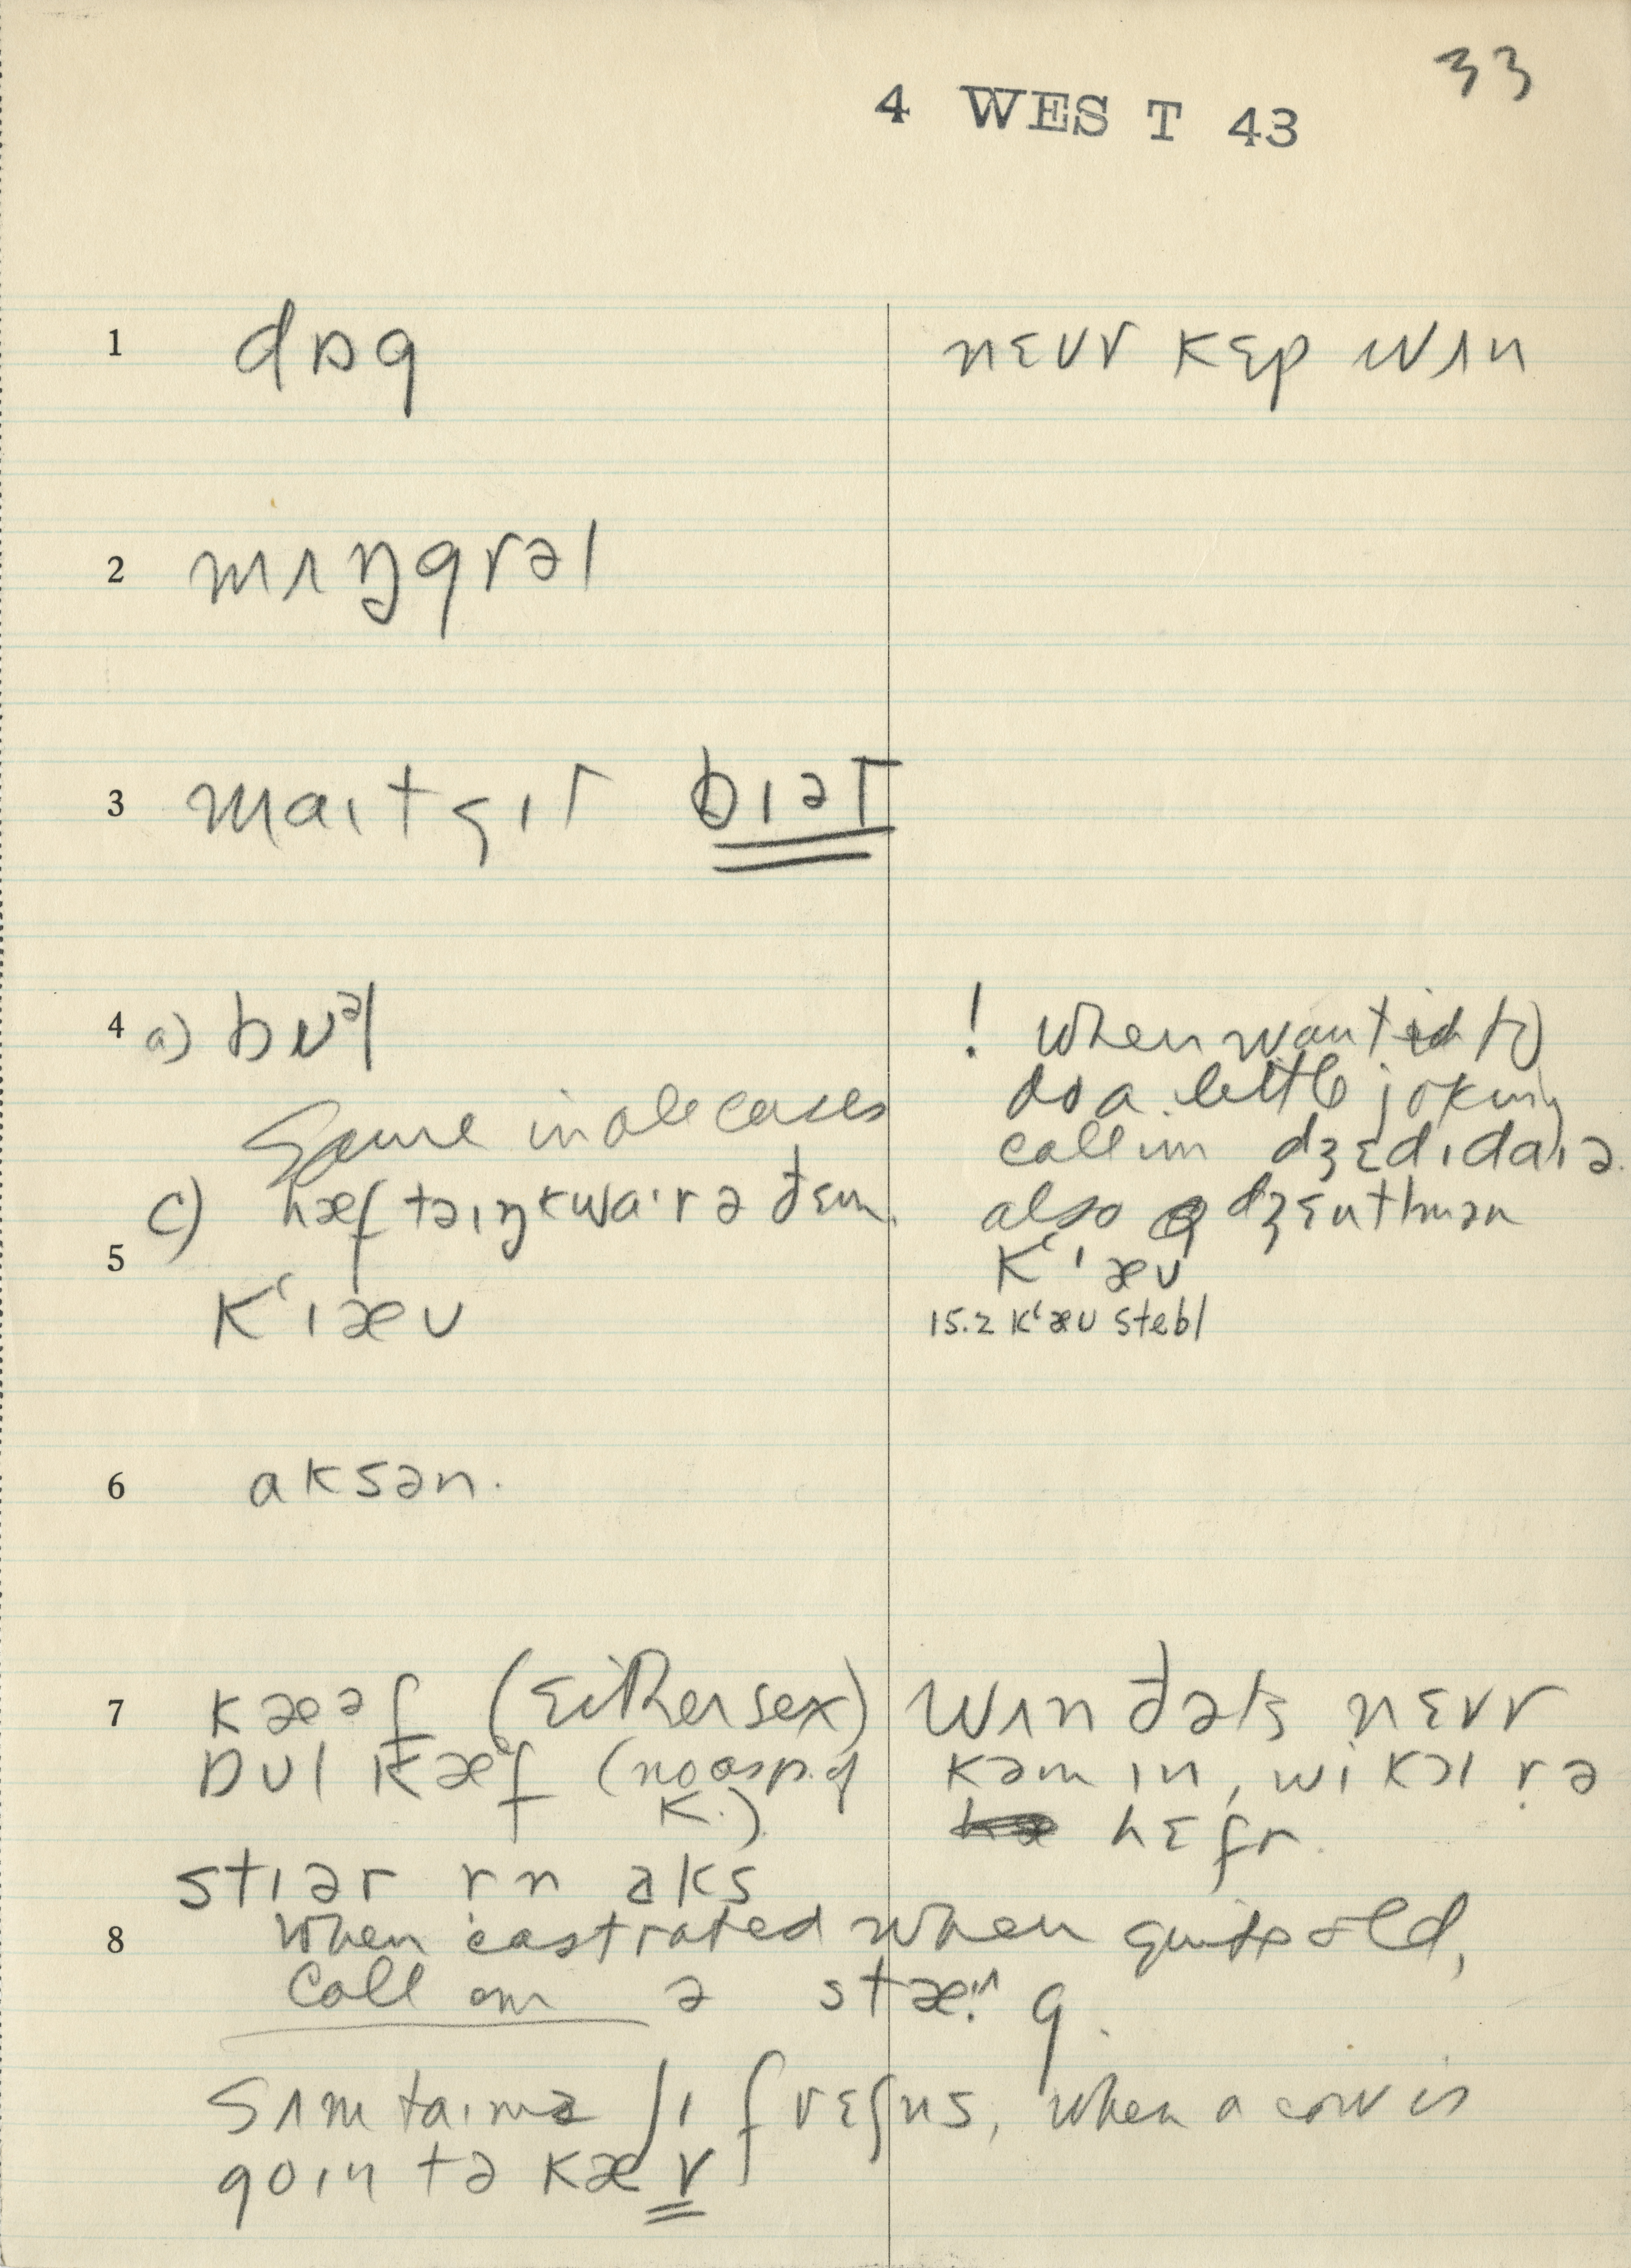 33
4 WEST 43
1 dɒg nɛvr kɛp wʌn
2 mʌŋgrəl
3 maɪt gɪt bɪət
4 a) bʊᵊl ! when wanted to
do a little joking
Same in all cases call im dʒɛdɪdaɪə
c) hæf tə ɪŋkwaɪr ə ðɛm. also dʒɛntlmən
5 K‘ɪæʊ
K‘ɪæʊ 15.2 K‘æʊ stebl
6 aksən.
7 kæəf (Either sex) wʌn ðəts nɛvr
bʊl kæᵊf (no asp. of K.) kəm ɪn, wi kɔl r ə
hɛfr.
stɪər rn aks
8 When castrated when quite old,
Call əm ə stæg.
sʌmtaɪmz ʃɪ rɛfɪus, when a cow is
goɪn tə kæv